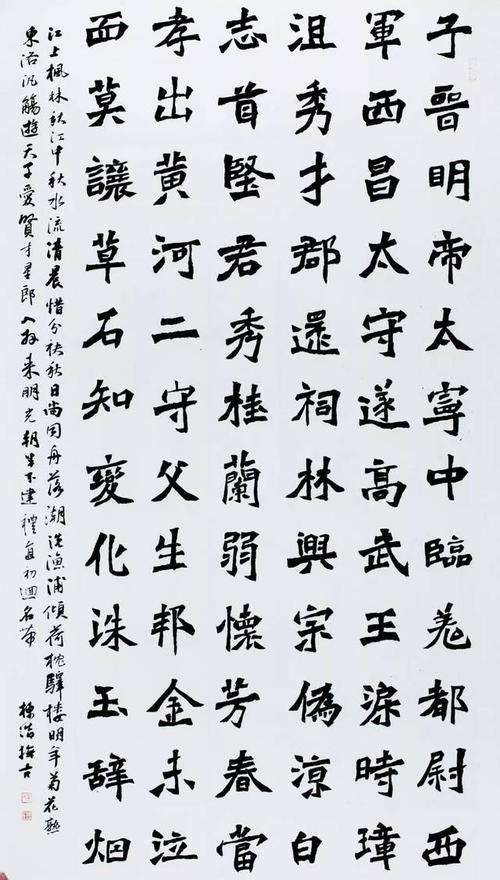 子晉明帝太寧中臨羌都尉西
軍西昌太守遂高武王淚時璋
沮秀才郡還祠林興宗偽涼白
志首堅君秀桂蘭弱懷芳春當
孝出黃河二守父生邦金未泣
面莫讓草石知變化洙玉辭烟
江上楓林秋江中秋水流清晨惜分袂秋日尚同舟落潮洗漁浦傾荷枕驛樓明年菊花熟
東洛汎觴遊天子愛賢才星郎入拜來明光朝半下建禮直初迴名